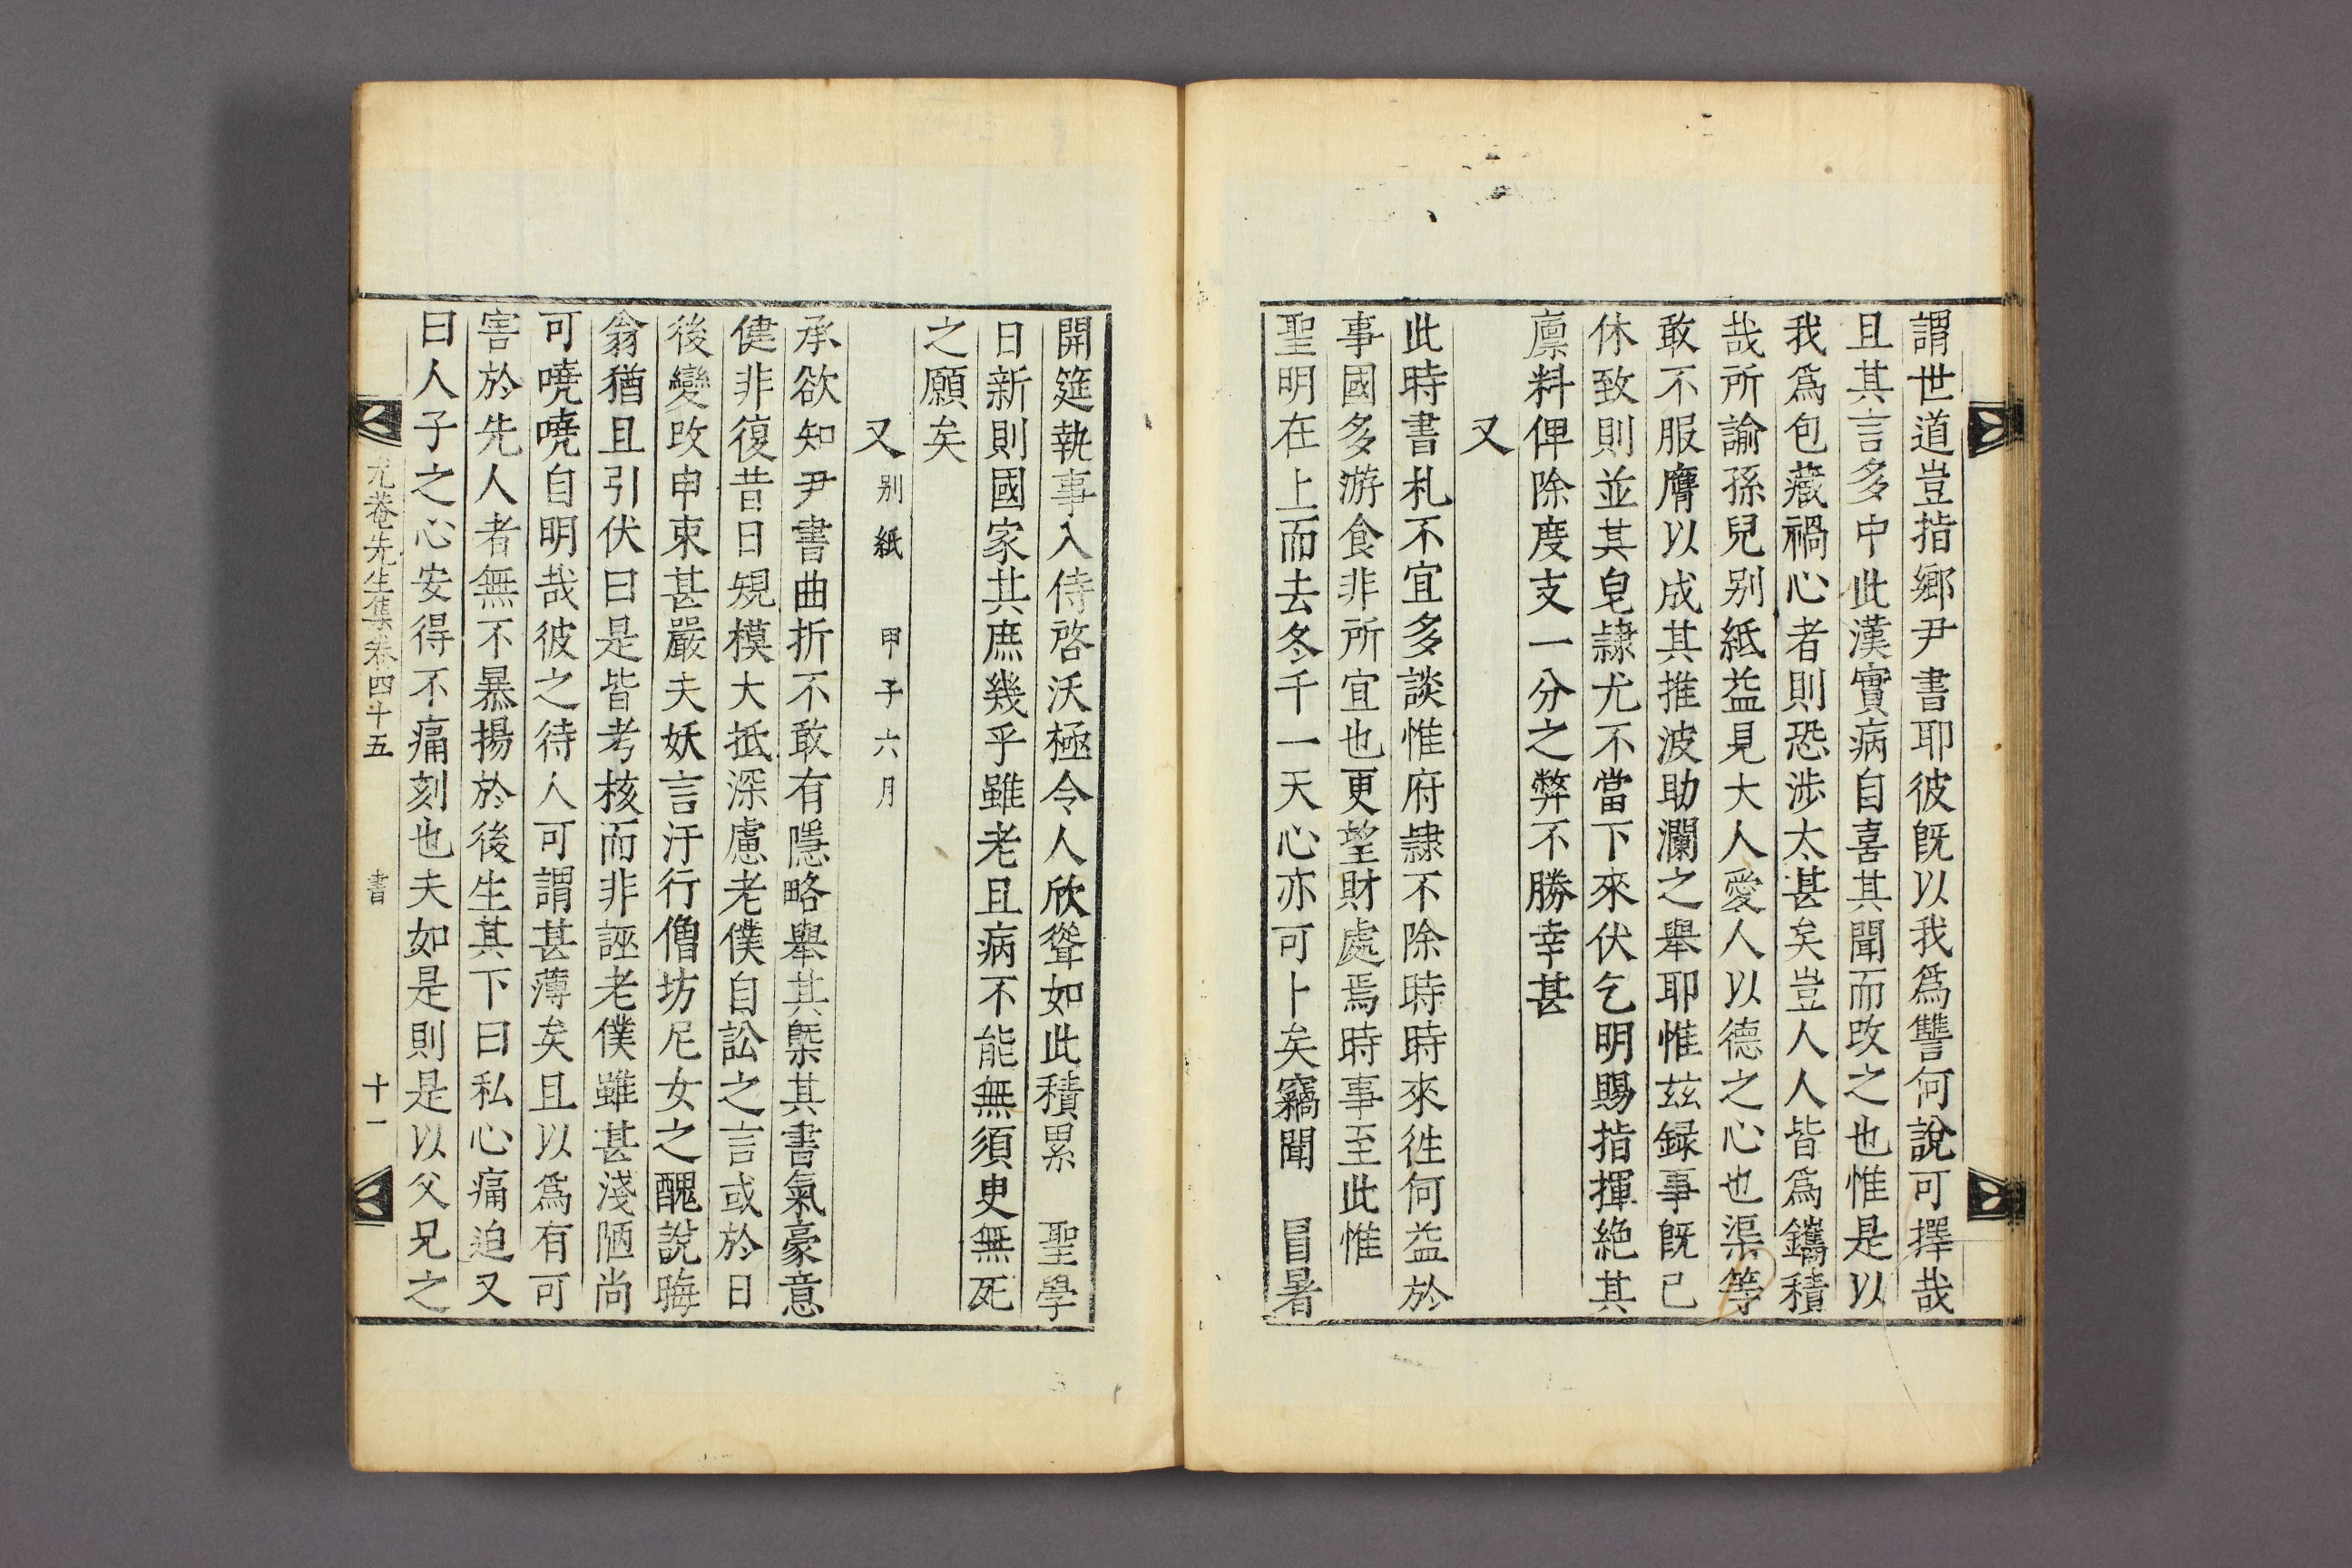 謂世道豈指鄉尹書耶彼旣以我爲讐何說可擇哉
且其言多中此漢實病自喜其聞而改之也惟是以
我爲包藏禍心者則恐涉太甚矣豈人人皆爲鑴積
哉所諭孫兒别紙益見大人愛人以德之心也渠等
敢不服膺以成其推波助瀾之舉耶惟玆録事旣已
休致則並其皂隷尤不當下來伏乞明賜指揮絶其
廪料俾除度支一分之弊不勝幸甚
又
此時書札不宜多談惟府隷不除時時來徃何益於
事國多游食非所宜也更望財處焉時事至此惟
聖明在上而去冬千一天心亦可卜矣竊聞 冒暑
開筵執事入侍啓沃極令人欣聳如此積累 聖學
日新則國家其庶幾乎雖老且病不能無須臾無死
之願矣
又 别紙 甲子六月
承欲知尹書曲折不敢有隱略舉其槩其書氣豪意
健非復昔日規模大抵深慮老僕自訟之言或於日
後變改申束甚嚴夫妖言汙行僧坊尼女之醜說晦
翁猶且引伏曰是皆考核而非誣老僕雖甚淺陋尚
可嘵嘵自明哉彼之待人可謂甚薄矣且以爲有可
害於先人者無不暴揚於後生其下曰私心痛迫又
曰人子之心安得不痛刻也夫如是則是以父兄之
尤菴先生集卷四十五 書 十一